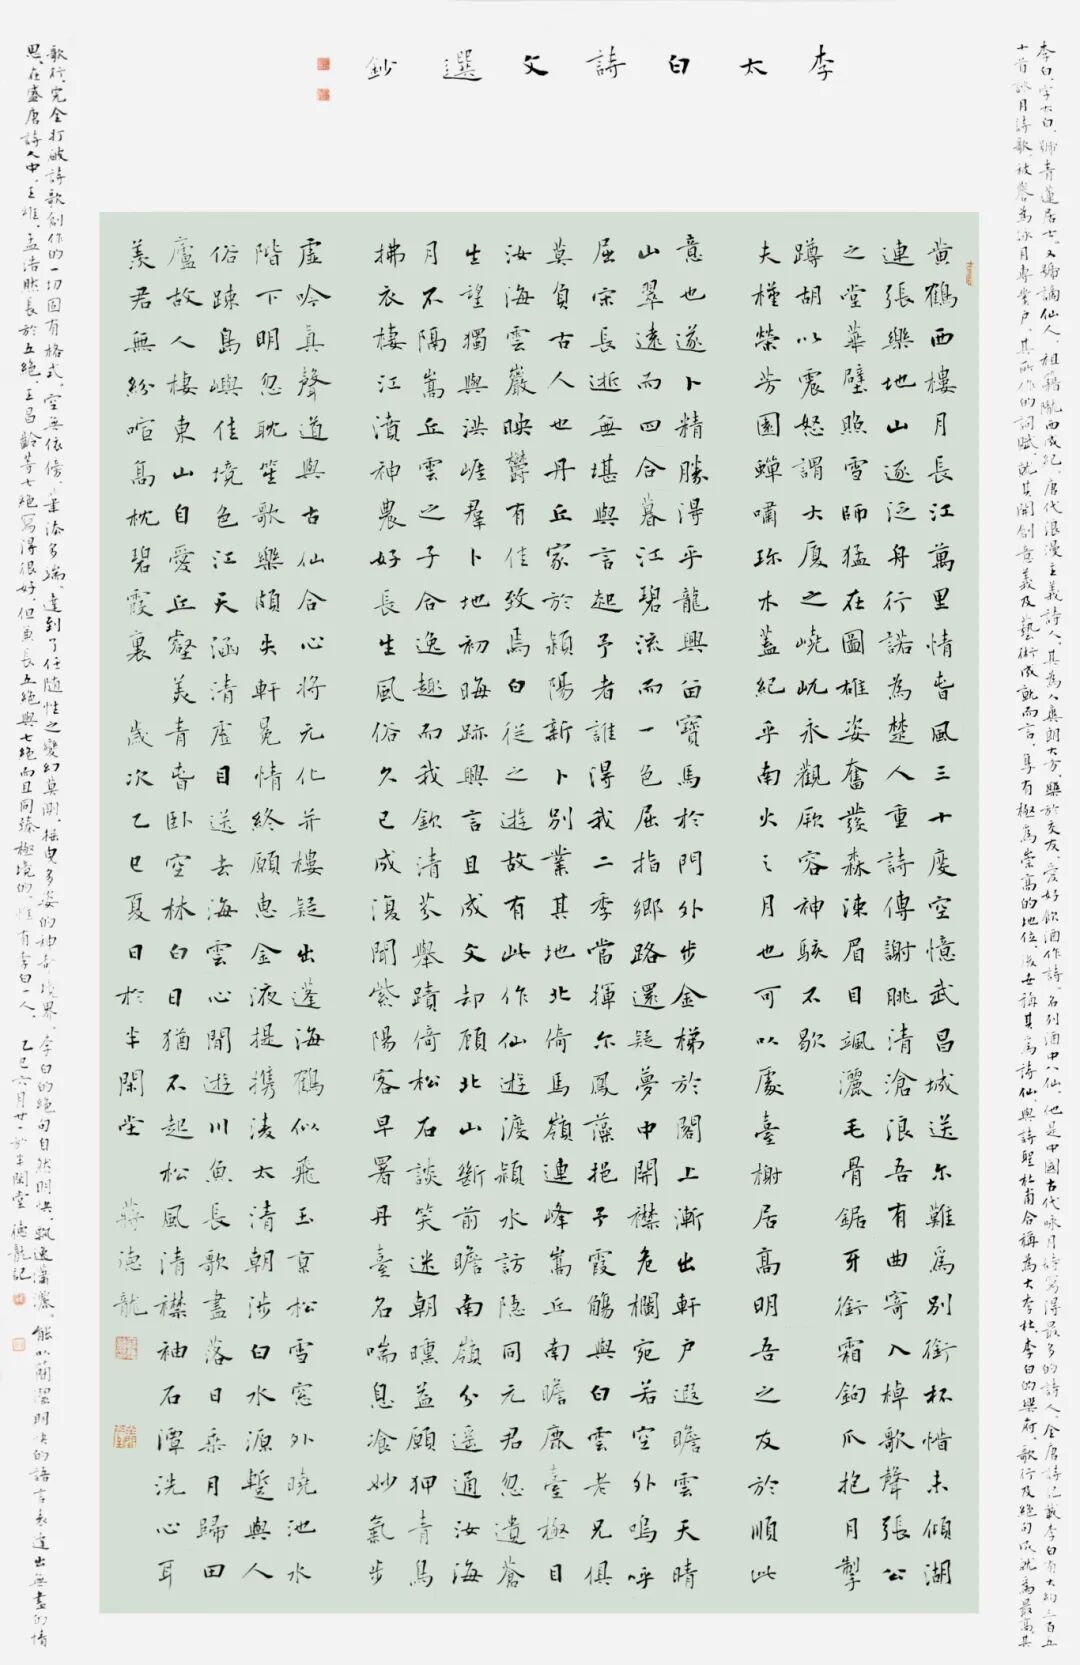 李太白詩文選鈔
李白，字太白，號青蓮居士，又號謫仙人，祖籍隴西成紀，唐代浪漫主義詩人，其為人爽朗大方，樂於交友，愛好飲酒作詩，名列酒中八仙，他是中國古代咏月詩寫得最多的詩人，全唐詩記載李白有大約三百五
十首詠月詩歌，被譽為咏月專業户，其所作的詞賦，就其開創意義及藝術成就而言，享有極為崇高的地位，後世稱其為詩仙，與詩聖杜甫合稱為大李杜，李白的樂府、歌行及絕句成就為最高，其
黃鶴西樓月長江萬里情春風三十度空憶武昌城送尔難為別銜杯惜未傾湖
連張樂地山逐泛舟行諾為楚人重詩傳謝朓清滄浪吾有曲寄入棹歌聲張公
之堂華壁照雪師猛在圖雄姿奮發森竦眉目颯灑毛骨鋸牙銜霜鉤爪抱月掣
蹲胡以震怒謂大厦之嶢屼永觀厥容神駭不歇
夫槿榮芳園蟬嘯珍木蓋紀乎南火之月也可以處臺榭居高明吾之友於順此
意也遂卜精勝得乎龍興留寶馬於門外步金梯於閣上漸出軒户遐瞻雲天晴
山翠遠而四合暮江碧流而一色屈指鄉路還疑夢中開襟危欄宛若空外嗚呼
屈宋長逝無堪與言起予者誰得我二季當揮尔鳳藻挹予霞觴與白雲老兄俱
莫負古人也丹丘家於潁陽新卜別業其地北倚馬嶺連峰嵩丘南瞻鹿臺極目
汝海雲巖映鬱有佳致焉白從之遊故有此作仙遊渡潁水訪隱同元君忽遺蒼
生望獨與洪崖羣卜地初晦跡興言且成文却顧北山斷前瞻南嶺分遥通汝海
月不隔嵩丘雲之子合逸趣而我欽清芬舉蹟倚松石談笑迷朝曛益願狎青鳥
拂衣棲江濆神農好長生風俗久已成復聞紫陽客早署丹臺名喘息飡妙氣步
虛吟真聲道與古仙合心將元化并樓疑出蓬海鶴似飛玉京松雪窓外曉池水
階下明忽耽笙歌樂頗失軒冕情終願惠金液提携淩太清朝涉白水源暫與人
俗疎島嶼佳境色江天涵清虛目送去海雲心閒遊川魚長歌盡落日乘月歸田
廬故人棲東山自愛丘壑美青春卧空林白日猶不起松風清襟袖石潭洗心耳
羨君無紛喧高枕碧霞裏 歲次乙巳夏日於半閑堂 蔣德龍
歌行，完全打破詩歌創作的一切固有格式，空無依傍，筆法多端，達到了任隨性之變幻莫測，搖曳多姿的神奇境界，李白的絕句自然明快，飄逸瀟灑，能以簡潔明快的語言表達出無盡的情
思，在盛唐詩人中，王維、孟浩然長於五絕，王昌齡等七絕寫得很好，但兼長五絕與七絕而且同臻極境的，惟有李白一人。 乙巳六月廿一於半閑堂 德龍記